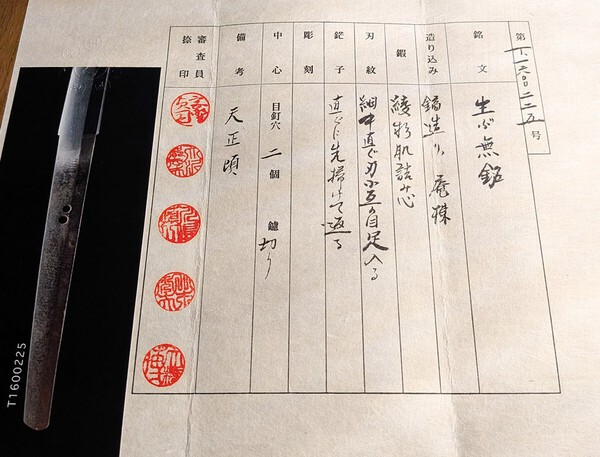 第T一六〇〇二二五号
銘文 生ぶ無銘
造り込み 鎬造り、庵棟
鍜 綾杉肌詰み心
刃紋 細中直ぐ刃小互の目足入る
鋩子 直ぐに先掃けて返る
彫刻
中心 目釘穴 二個 鑢 切り
備考 天正頃
審査員
捺印
T1600225